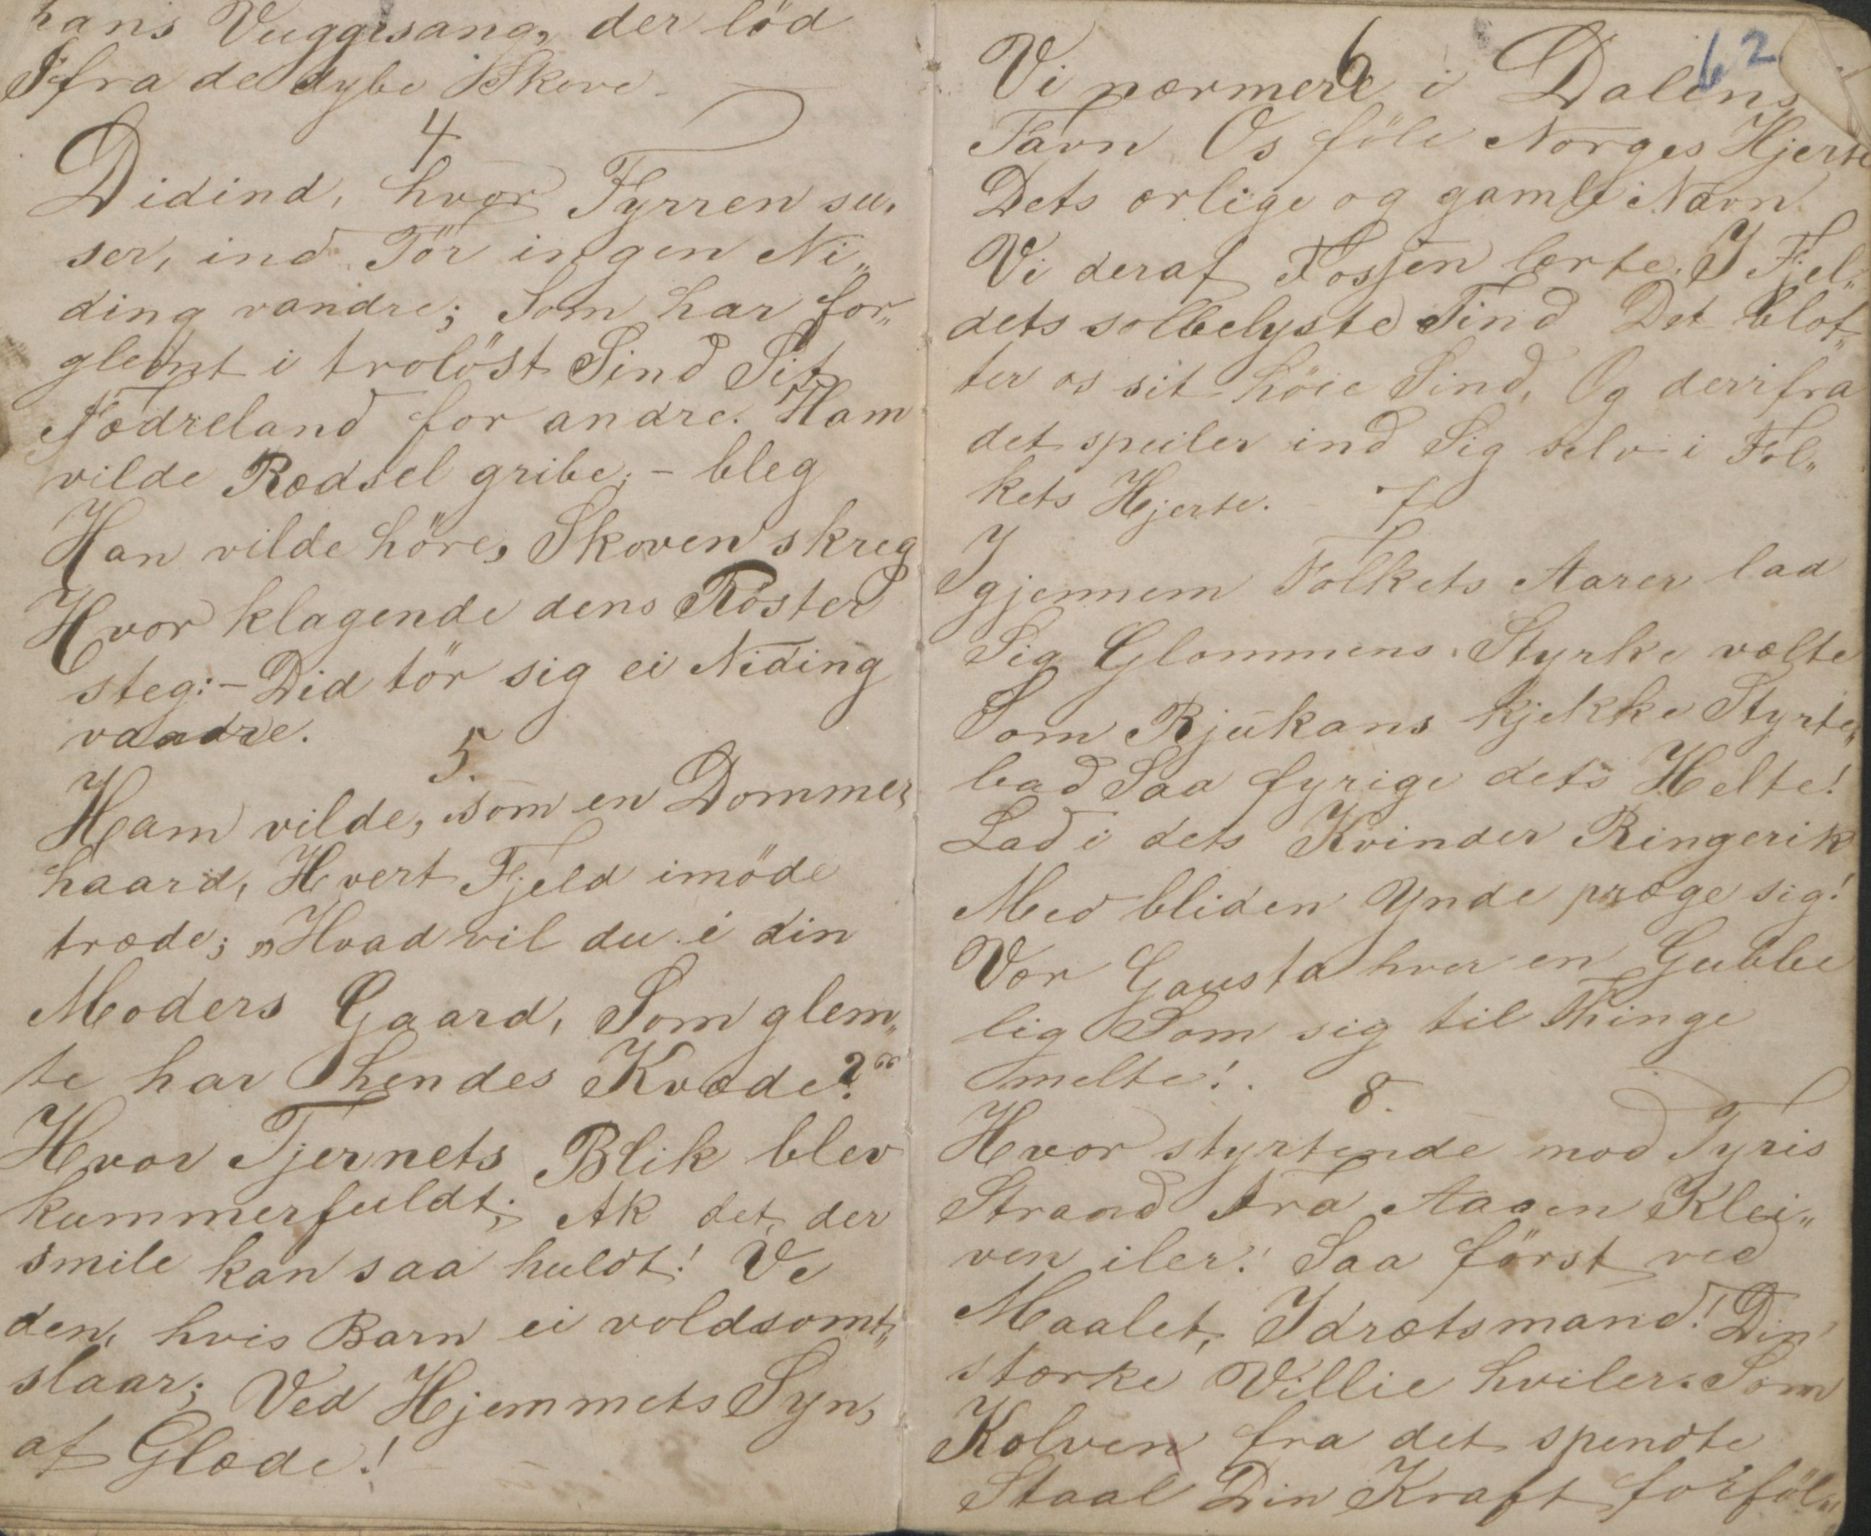 hans Vuggesang, der löd
Ifra de dybe Skove.
4
Didind, hvor Fyrren su„
ser, ind Tör ingen Ni„
ding vandre; Som har for„
glemt i trolöst Sind Sit
Fædreland for andre. Ham
vilde Rædsel gribe; - bleg
Han vilde höre, Skoven skreg
Hvor klagende dens Röster
steg: - Did tör sig ei Niding
vandre.
5.
Ham vilde, som en Dommer
haard, Hvert Fjeld imöde
træde; „Hvad vil du i din
Moders Gaard, Som glem„
te har hendes Kvæde?“
Hvor Tjernets Blik blev
kummerfuldt; Ak det, der
smile kan saa huldt! Ve
den, hvis Barn ei voldsomt
slaar; Ved Hjemmets Syn,
af Glæde!
62
6
Vi nærmere i Dalens
Favn Os föle Norges Hjerte
Dets ærlige og gamle Navn
Vi deraf Fossen lærte. I Fjel„
dets solbelyste Tind Det blot„
ter os sit höie Sind, Og derifra
det speiler ind Sig selv i Fol„
kets Hjerte.
7
I
gjennem Folkets Aarer lad
Sig Glommens Styrke vælte
Som Rjukans kjekke Styrte„
bad Saa fyrige dets Helte!
Lad i dets Kvinder Ringerik
Med bliden Ynde præge sig!
Vær Gausta hver en Gubbe
lig Som sig til Thinge
melte!
8.
Hvor styrtende mod Tyris
Strand Fra Aasen Klei„
ven iler! Saa först ved
Maalet, Idrætsmand! Din
stærke Villie hviler. Som
Kolven fra det spendte
Staal Din Kraft forföl„